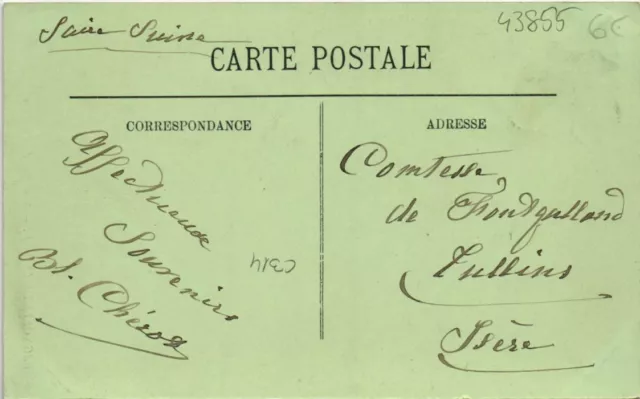 43855 6€
CARTE POSTALE
CORRESPONDANCE
Affectueux
Souvenirs
Bl.
C314
ADRESSE
Comtesse
de Fontgalland
Tullins
Isère